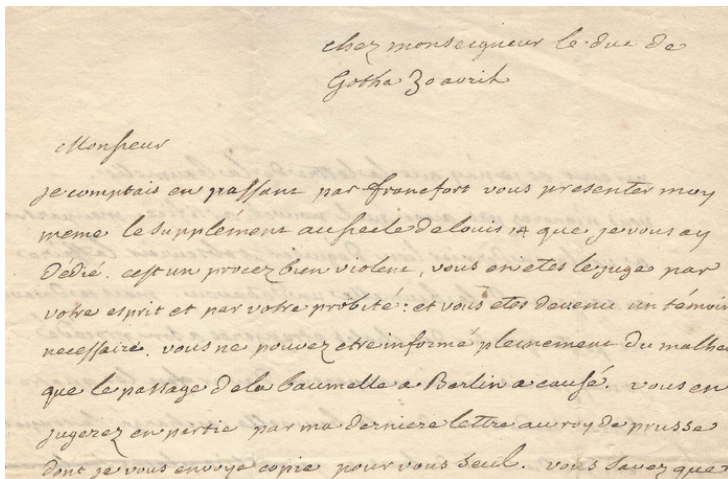 chez monseigneur le duc de
Gotha 30 avril
Monsieur
je comptais en passant par francfort vous presenter moy
meme le supplément au siecle de louis 14 que je vous ay
dédié. cest un procez bien violent, vous en etes le juge par
votre esprit et par votre probité: et vous etes devenu un témoin
necessaire. vous ne pouvez etre informé pleinement du malhe
que le passage de la baumelle a Berlin a causé. vous en
jugerez en partie par ma derniere lettre au roy de prusse
dont je vous envoye copie pour vous seul. vous savez que